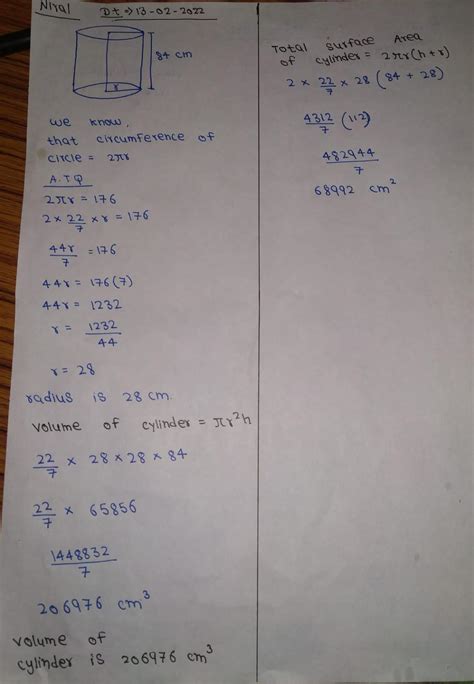 Niral Dt → 13-02-2022
84 cm
r
we know,
that circumference of
circle = 2πr
A.T.Q
2πr = 176
2 × 22/7 × r = 176
44r/7 = 176
44r = 176(7)
44r = 1232
r = 1232/44
r = 28
radius is 28 cm.
volume of cylinder = πr²h
22/7 × 28 × 28 × 84
22/7 × 65856
1448832/7
206976 cm³
volume of
cylinder is 206976 cm³
Total surface Area
of cylinder = 2πr(h+r)
2 × 22/7 × 28 (84 + 28)
4312/7 (112)
482944/7
68992 cm²